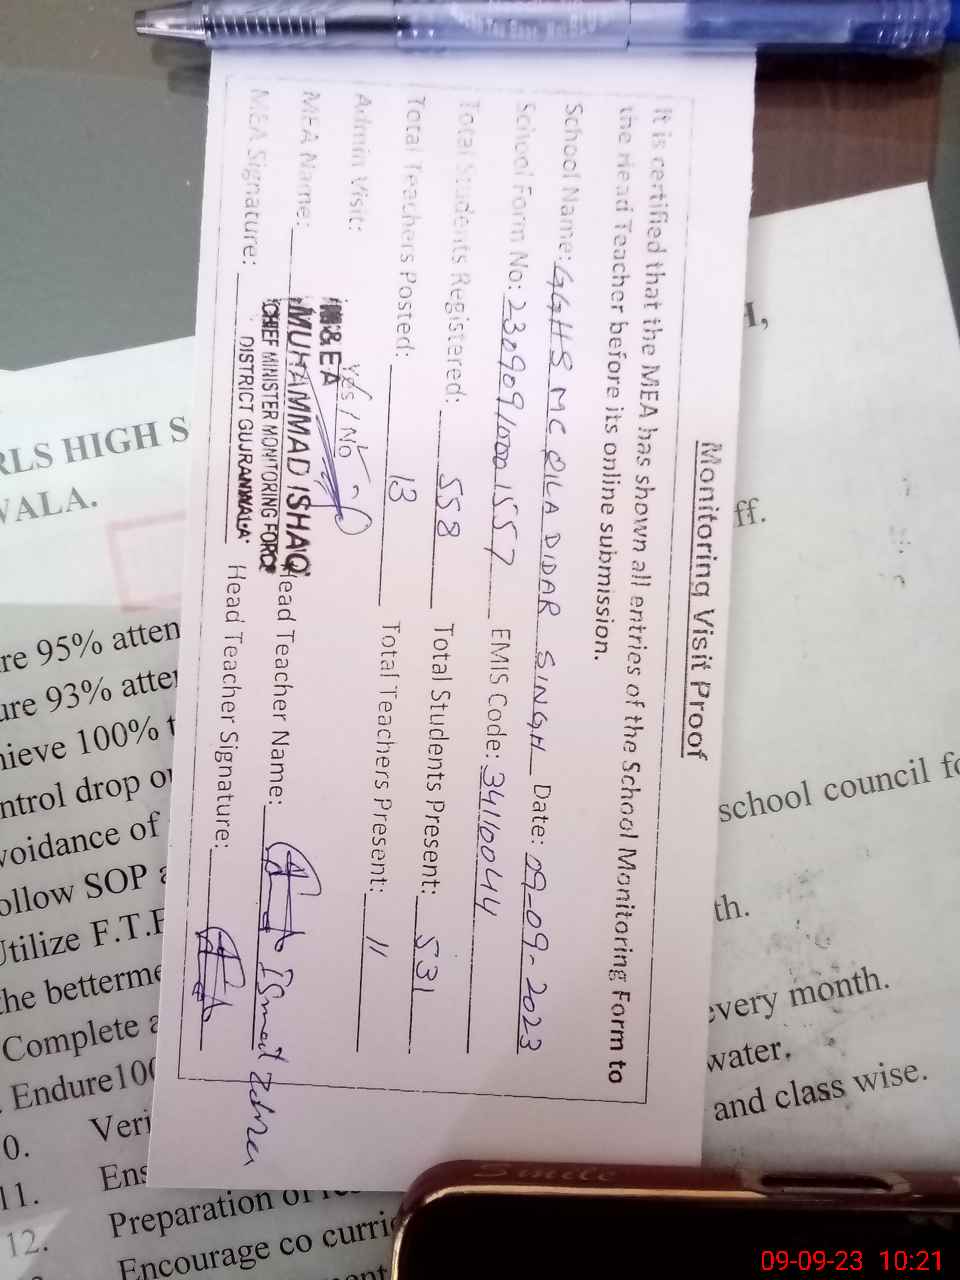 Monitoring Visit Proof
It is certified that the MEA has shown all entries of the School Monitoring Form to
the Head Teacher before its online submission.
School Name: GGHS MC QILA DIDAR SINGH Date: 09-09-2023
School Form No: 23090910001557 EMIS Code: 34110044
Total Students Registered: 558 Total Students Present: 531
Total Teachers Posted: 13 Total Teachers Present: 11
Admin Visit: Yes / No
M&EA
MEA Name: MUHAMMAD ISHAQ Head Teacher Name: Ismat Zahra
CHIEF MINISTER MONITORING FORCE
MEA Signature: DISTRICT GUJRANWALA Head Teacher Signature:
RLS HIGH S
WALA.
ff.
re 95% atten
ure 93% atten
hieve 100% t
ntrol drop o
school council fo
voidance of
ollow SOP a
th.
Utilize F.T.F
the betterme
every month.
Complete a
water.
Endure100
and class wise.
0. Veri
11. Ens
12. Preparation of
Encourage co curri
Smile
09-09-23 10:21